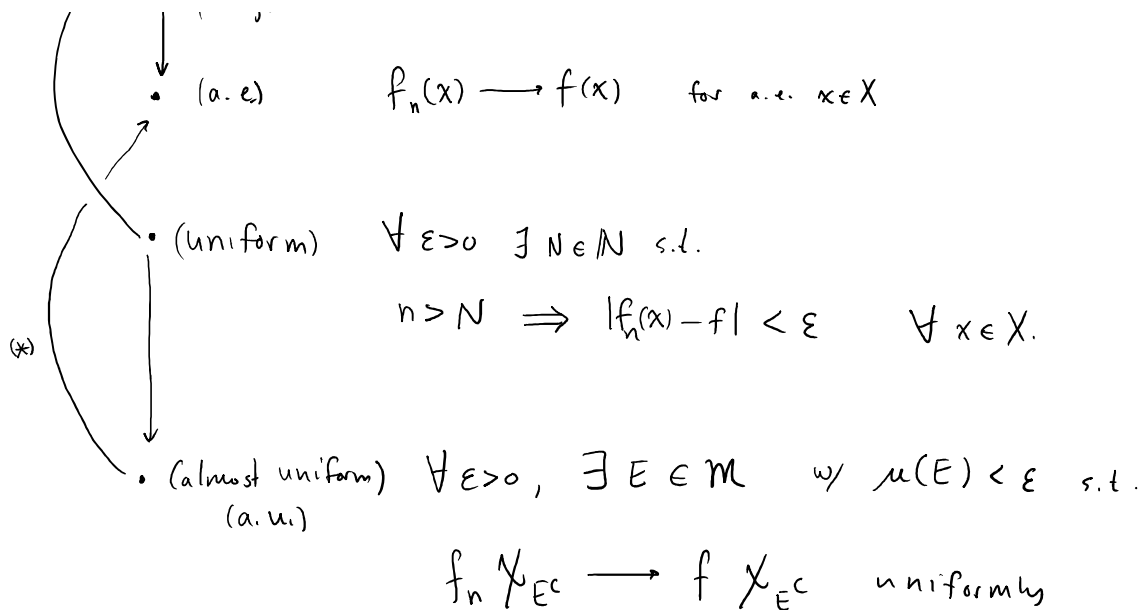 • (a.e) fₙ(x) ⟶ f(x) for a.e. x ∈ X
• (uniform) ∀ ε>0 ∃ N ∈ ℕ s.t.
n > N ⟹ |fₙ(x) − f| < ε ∀ x ∈ X.
(*)
• (almost uniform) ∀ ε>0, ∃ E ∈ 𝓜 w/ μ(E) < ε s.t.
(a.u.)
fₙ χ_{E^c} ⟶ f χ_{E^c} uniformly